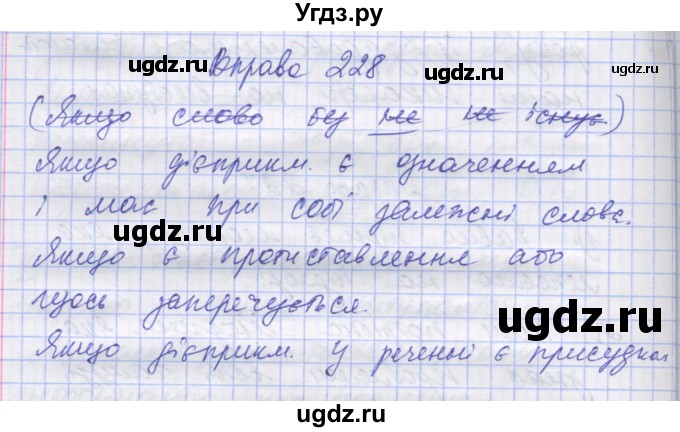 Угдз.ру
ugdz.ru ugdz.ru
Вправа 228
(Якщо слово без не не існує)
Якщо дієприкм. є означенням
і має при собі залежні слова.
ugdz.ru ugdz.ru
Якщо є протиставлення або
щось заперечується.
ugdz.ru ugdz.ru
Якщо дієприкм. у реченні є присудком
ugdz.ru